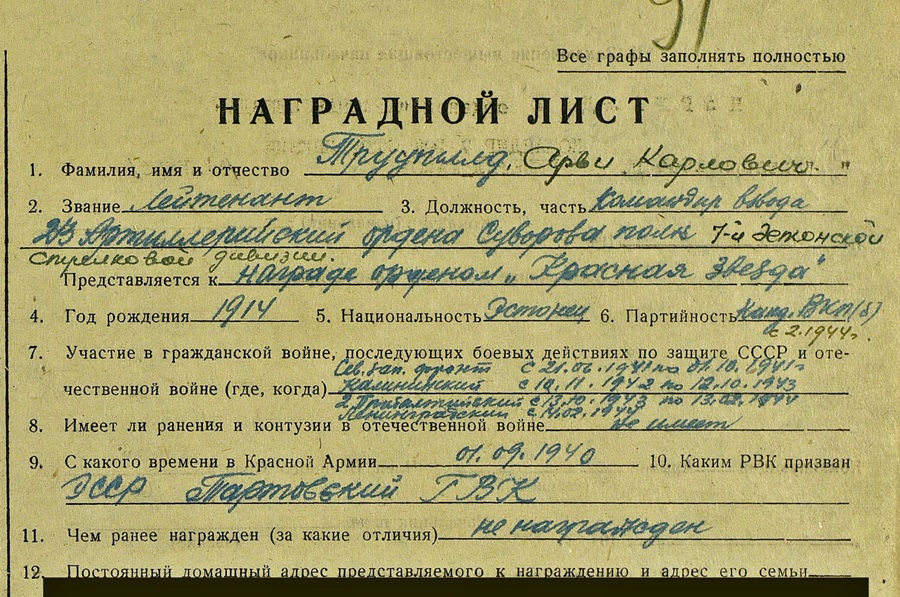 91
Все графы заполнять полностью
НАГРАДНОЙ ЛИСТ
1. Фамилия, имя и отчество Труупылд, Арви Карлович. "
2. Звание Лейтенант 3. Должность, часть Командир взвода
23 Артиллерийский ордена Суворова полк 7-й Эстонской
стрелковой дивизии.
Представляется к награде орденом „Красная Звезда"
4. Год рождения 1914 5. Национальность Эстонец 6. Партийность Канд. ВКП(б)
с 2.1944г.
7. Участие в гражданской войне, последующих боевых действиях по защите СССР и оте-
Сев. зап. фронт с 21.06.1941 по 01.10.1941г
чественной войне (где, когда) Калининский с 10.11.1942 по 12.10.1943
2 Прибалтийский с 13.10.1943 по 13.02.1944
Ленинградский с 14.02.1944
8. Имеет ли ранения и контузии в отечественной войне Не имеет
9. С какого времени в Красной Армии 01.09.1940 10. Каким РВК призван
ЭССР Тартовский ГВК
11. Чем ранее награжден (за какие отличия) не награжден
12. Постоянный домашний адрес представляемого к награждению и адрес его семьи